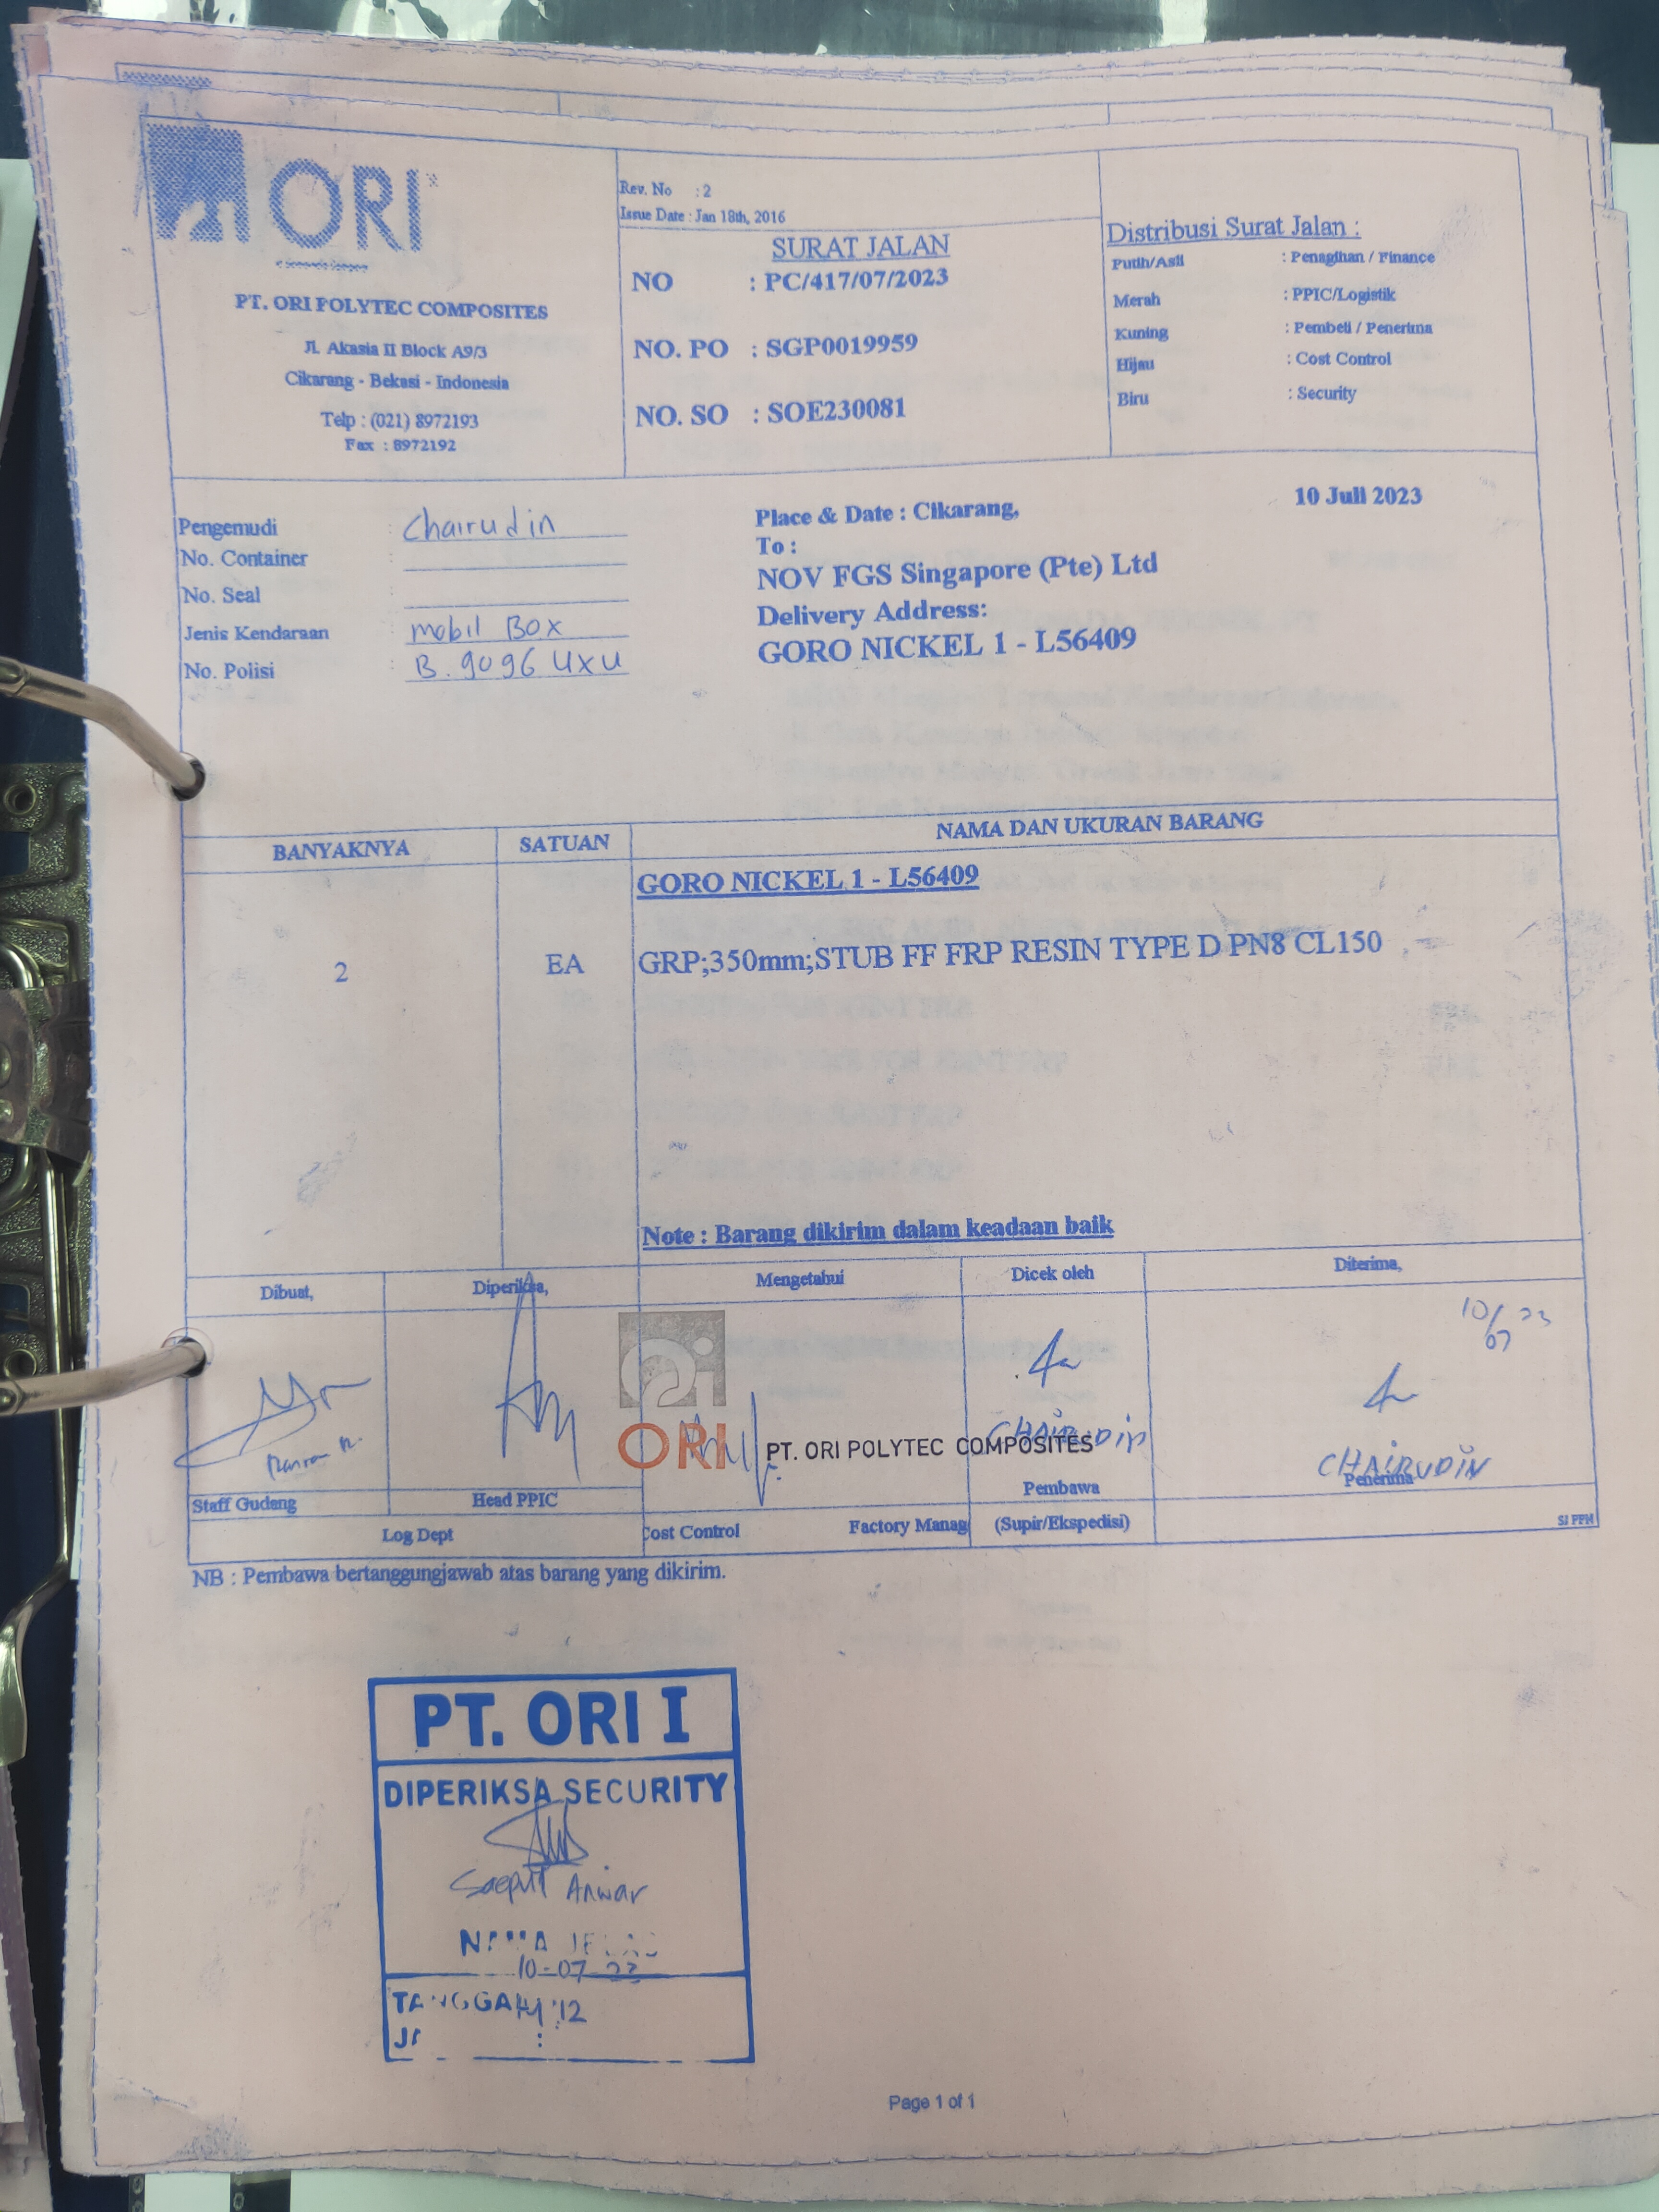 ORI
PT. ORI POLYTEC COMPOSITES
Jl. Akasia II Block A9/3
Cikarang - Bekasi - Indonesia
Telp : (021) 8972193
Fax : 8972192
Rev. No : 2
Issue Date : Jan 18th, 2016
SURAT JALAN
NO : PC/417/07/2023
NO. PO : SGP0019959
NO. SO : SOE230081
Distribusi Surat Jalan :
Putih/Asli : Penagihan / Finance
Merah : PPIC/Logistik
Kuning : Pembeli / Penerima
Hijau : Cost Control
Biru : Security
Pengemudi : Chairudin
No. Container
No. Seal
Jenis Kendaraan : mobil Box
No. Polisi : B. 9096 UXU
Place & Date : Cikarang, 10 Juli 2023
To :
NOV FGS Singapore (Pte) Ltd
Delivery Address:
GORO NICKEL 1 - L56409
BANYAKNYA SATUAN NAMA DAN UKURAN BARANG
GORO NICKEL 1 - L56409
2 EA GRP;350mm;STUB FF FRP RESIN TYPE D PN8 CL150
Note : Barang dikirim dalam keadaan baik
Dibuat, Diperiksa, Mengetahui Dicek oleh Diterima,
10/07 23
ORI PT. ORI POLYTEC COMPOSITES
CHAIRUDIN CHAIRUDIN
Staff Gudang Head PPIC Pembawa Penerima
Log Dept Cost Control Factory Manag (Supir/Ekspedisi)
SJ PPN
NB : Pembawa bertanggungjawab atas barang yang dikirim.
PT. ORI I
DIPERIKSA SECURITY
Saepul Anwar
NAMA JELAS
10-07-23
TANGGAL
Page 1 of 1